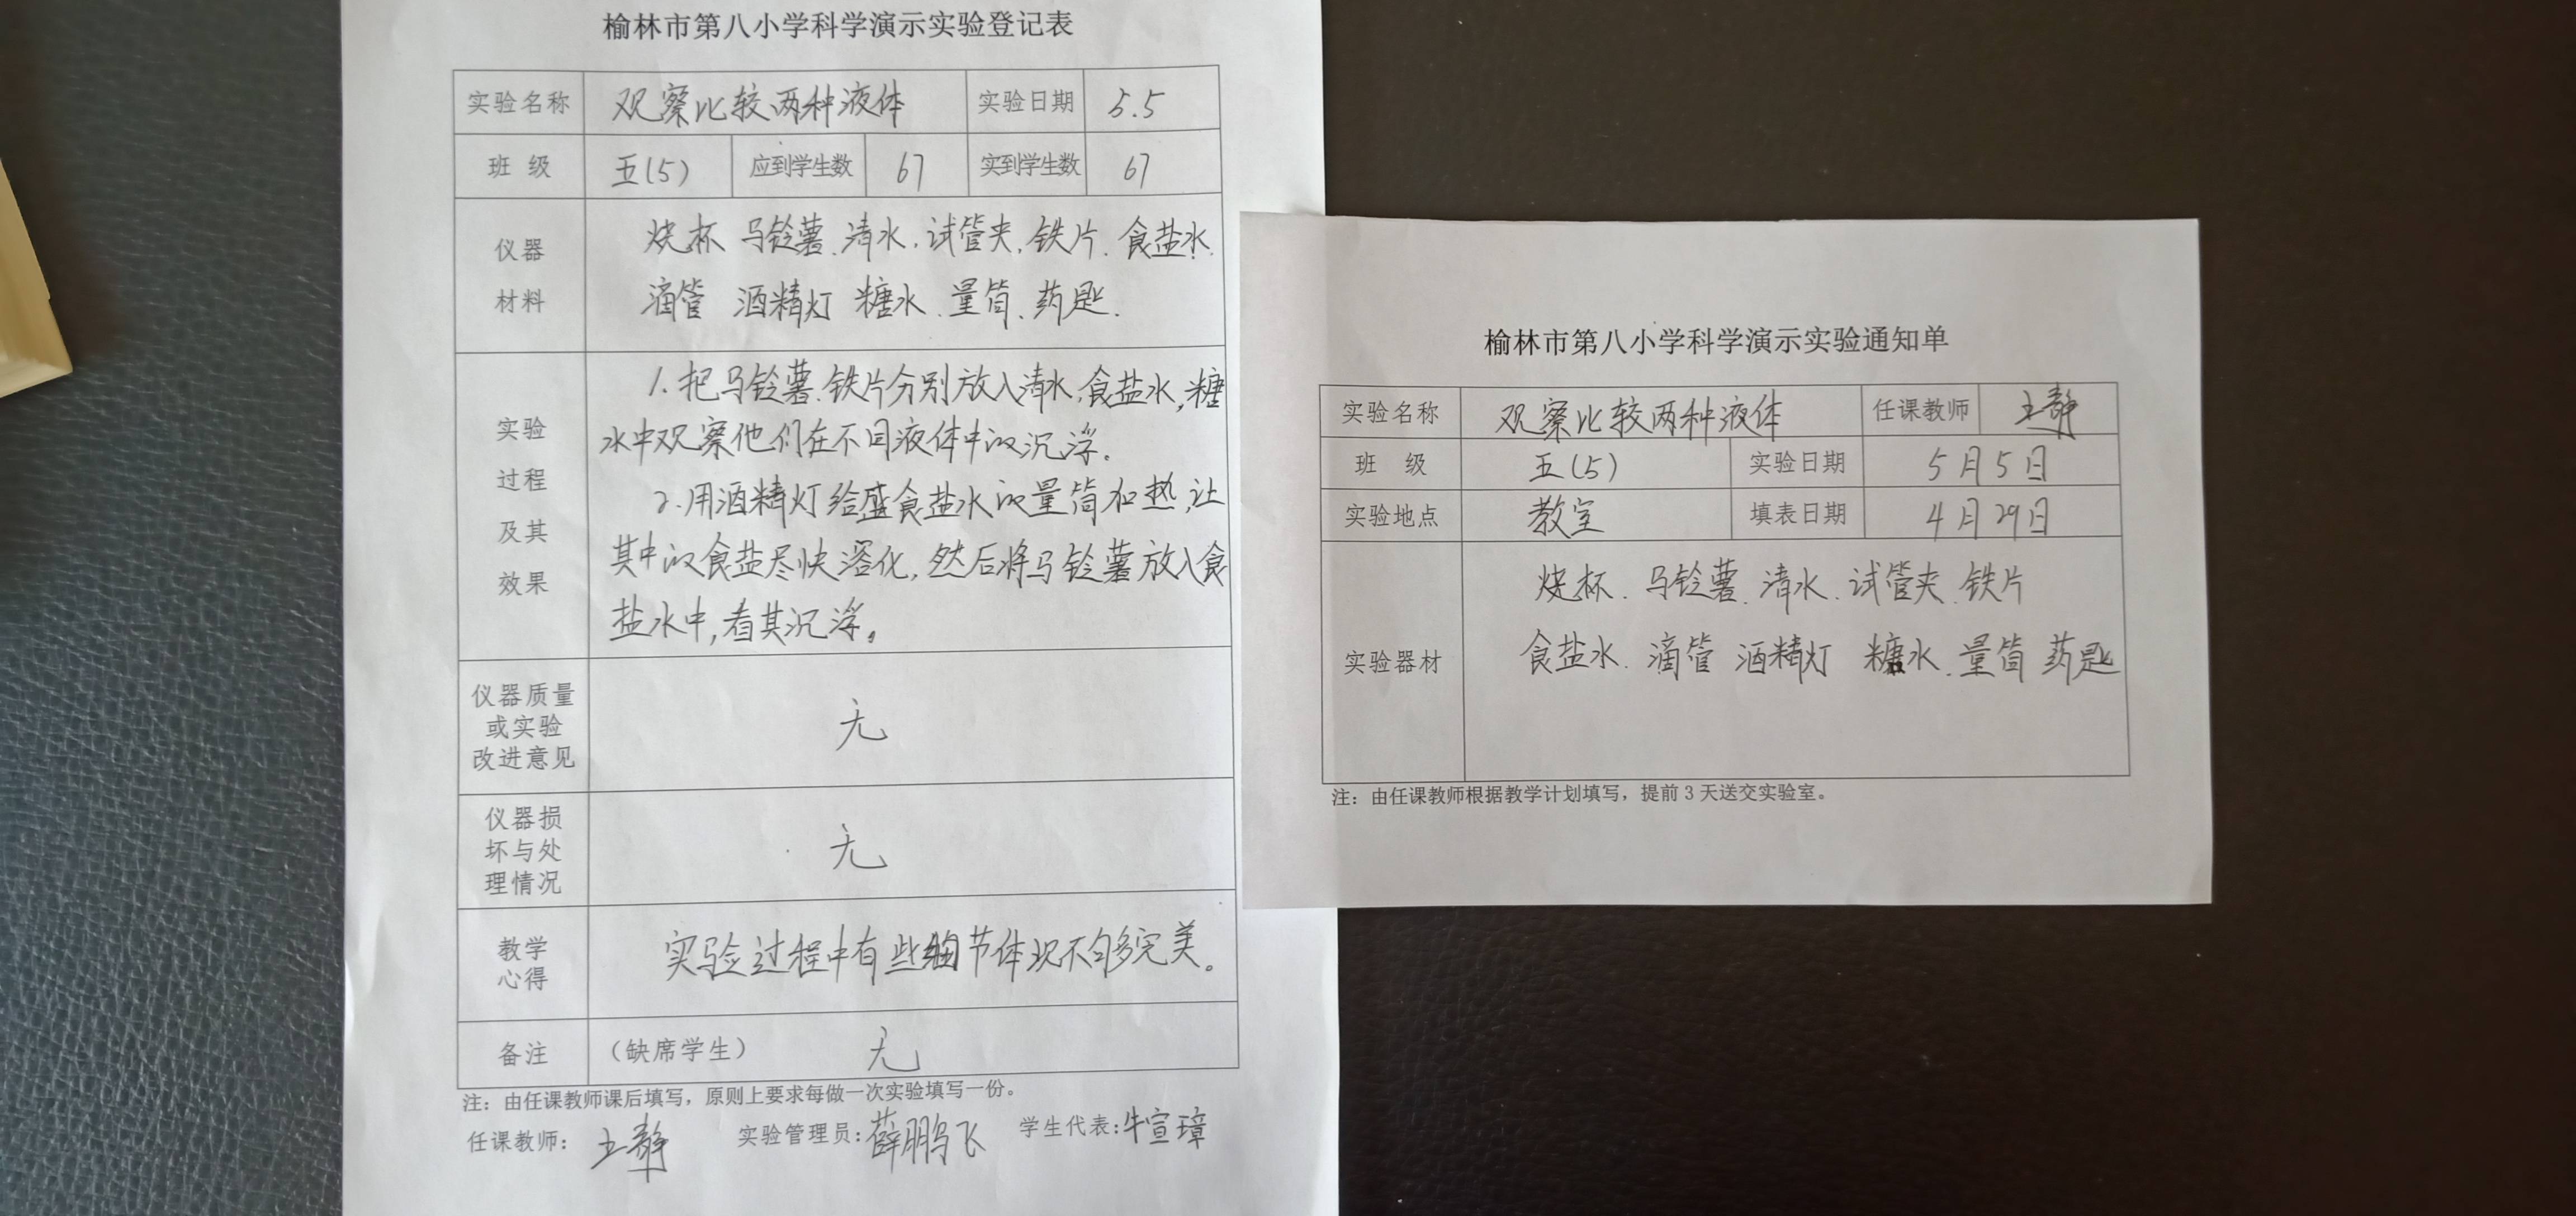 榆林市第八小学科学演示实验登记表
实验名称 观察比较两种液体 实验日期 5.5
班 级 五(5) 应到学生数 67 实到学生数 67
仪器
材料
烧杯 马铃薯.清水.试管夹.铁片.食盐水.
滴管 酒精灯 糖水.量筒.药匙.
实验
过程
及其
效果
1.把马铃薯.铁片分别放入清水,食盐水,糖
水中观察他们在不同液体中的沉浮.
2.用酒精灯给盛食盐水的量筒加热,让
其中的食盐尽快溶化,然后将马铃薯放入食
盐水中,看其沉浮。
仪器质量
或实验
改进意见
无
仪器损
坏与处
理情况
无
教学
心得
实验过程中有些细节体现不够完美。
备注 （缺席学生） 无
注：由任课教师课后填写，原则上要求每做一次实验填写一份。
任课教师： 王静 实验管理员: 薛鹏飞 学生代表: 牛宣璋
榆林市第八小学科学演示实验通知单
实验名称 观察比较两种液体 任课教师 王静
班 级 五(5) 实验日期 5月5日
实验地点 教室 填表日期 4月29日
实验器材
烧杯.马铃薯.清水.试管夹.铁片
食盐水.滴管 酒精灯 糖水.量筒 药匙
注：由任课教师根据教学计划填写，提前 3 天送交实验室。